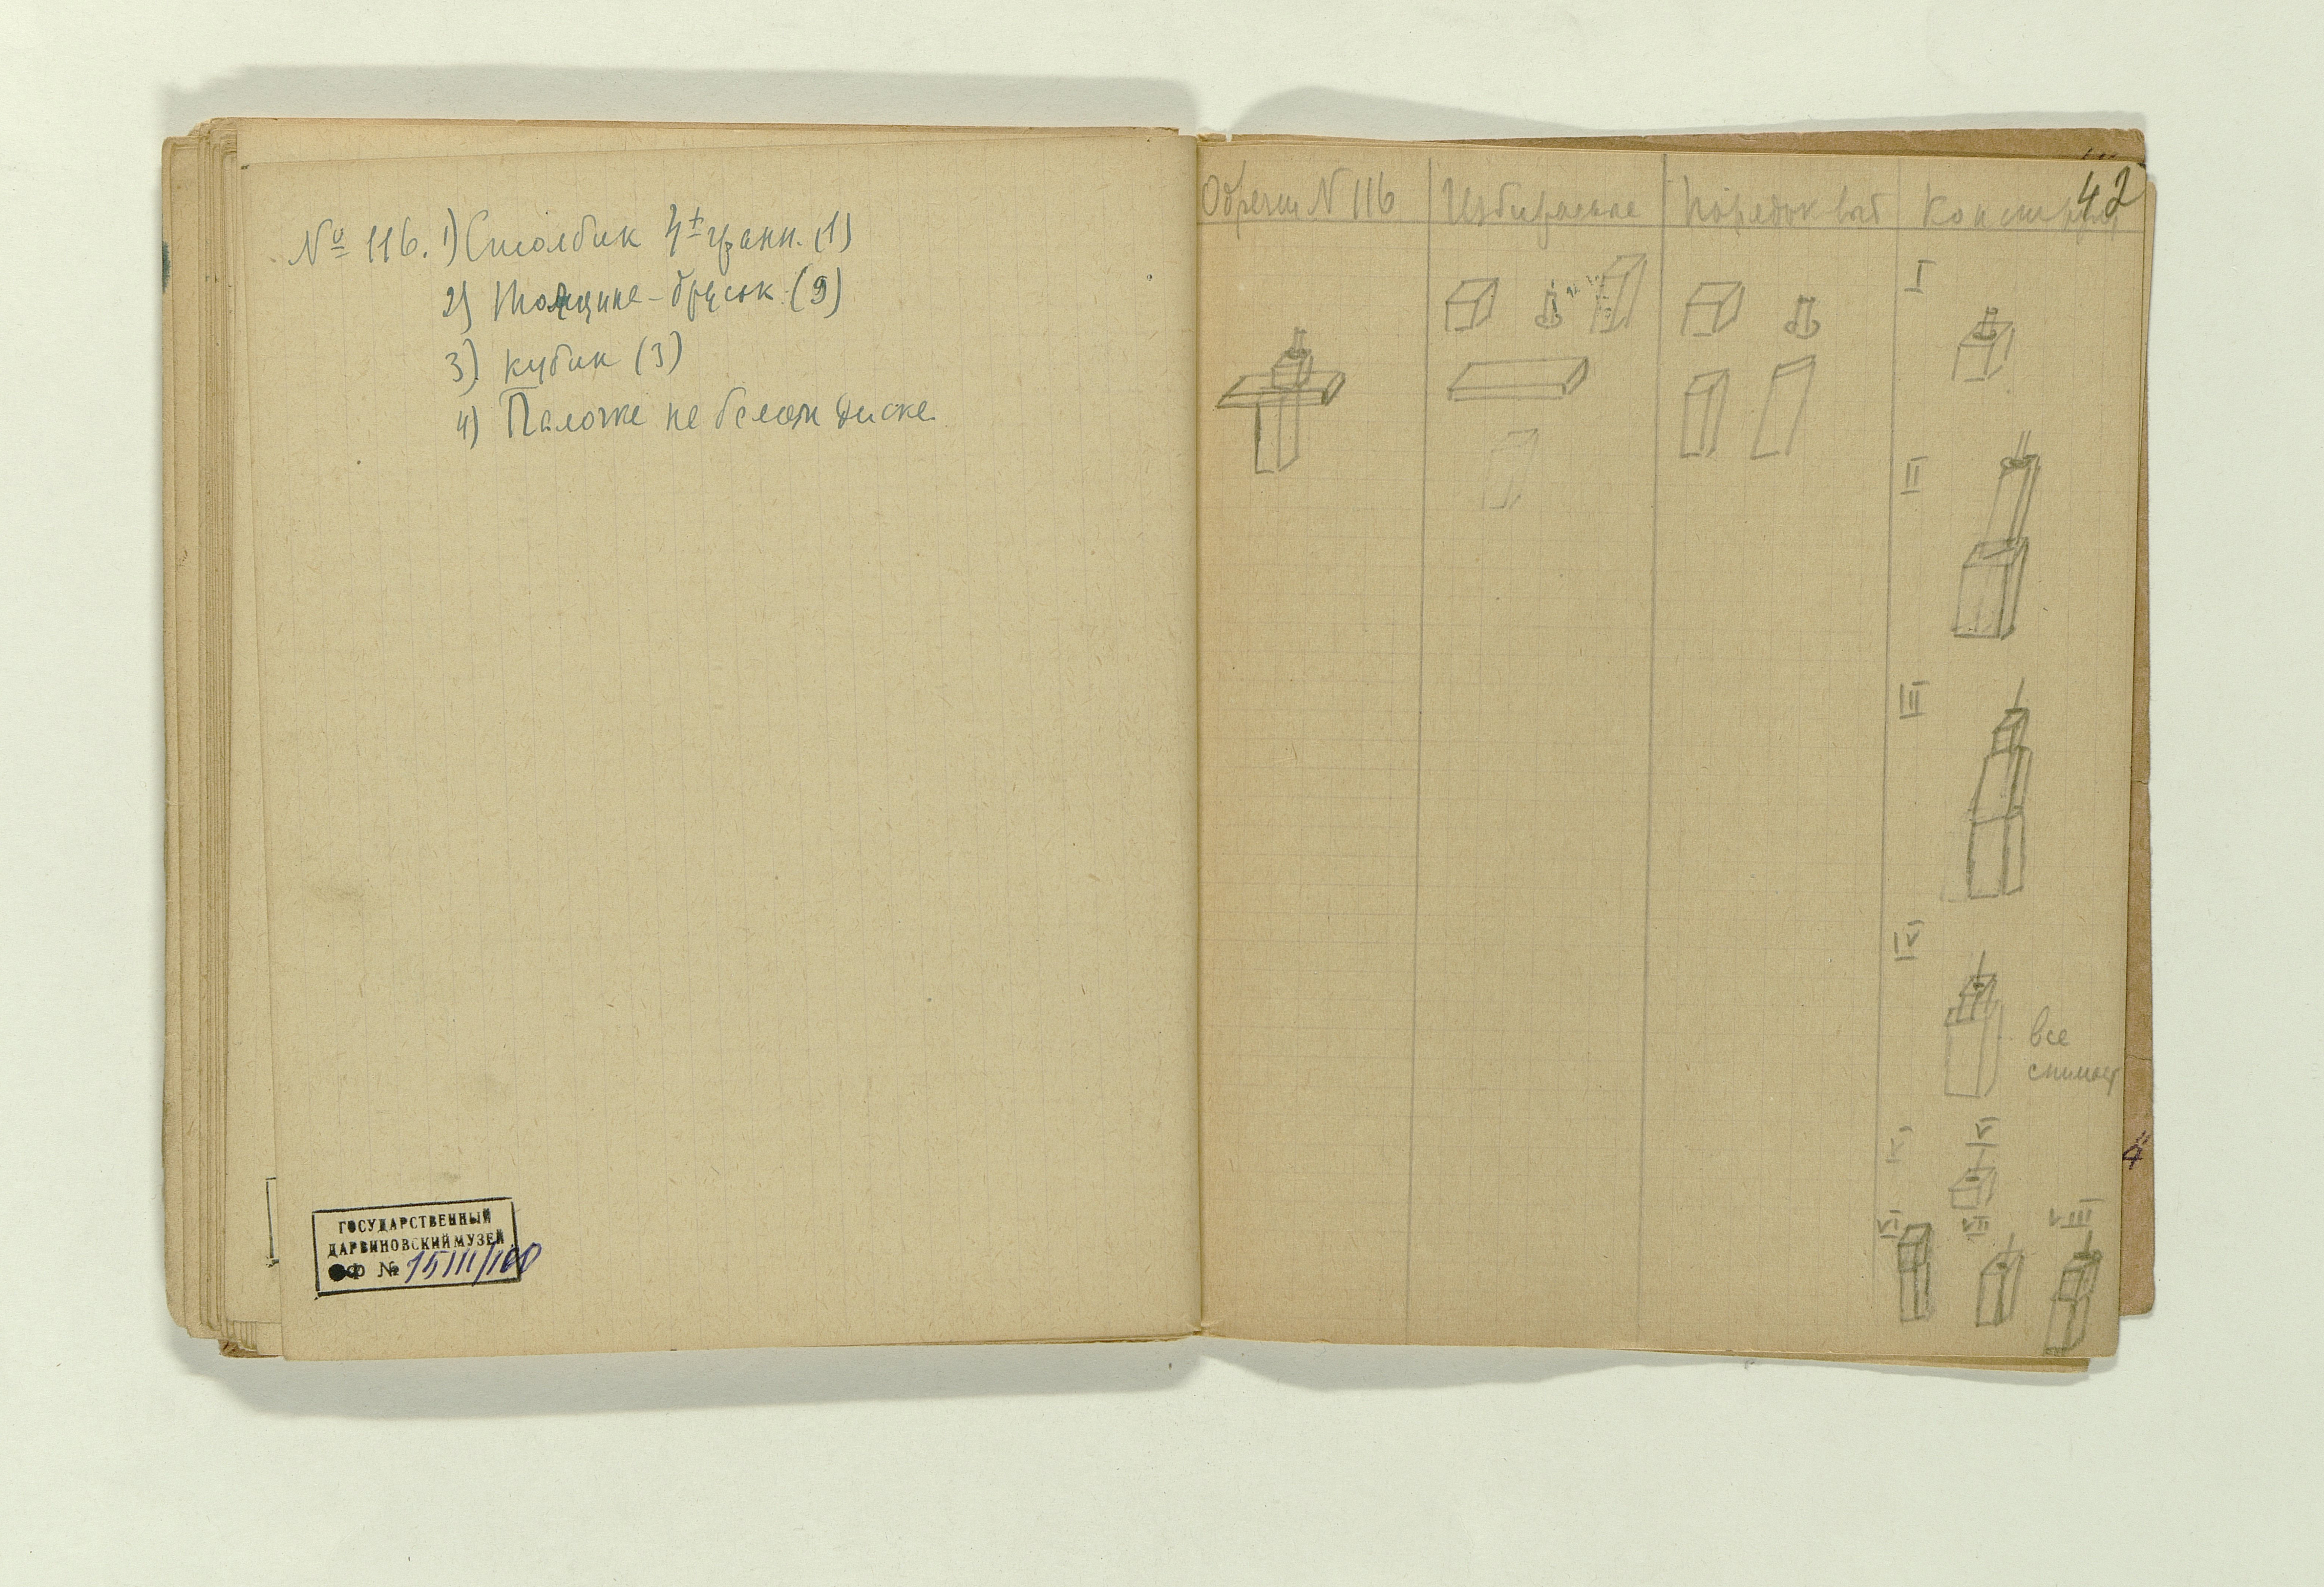 № 116. 1) Столбик 4х гранн. (1)
2) Толщине-брусок (9)
3) кубик (3)
4) Палочке на белом диске.
ГОСУДАРСТВЕННЫЙ
ДАРВИНОВСКИЙ МУЗЕЙ
ОФ № 15111/160
42
Образец N 116
Избирание
Порядок выб
Констру
I
II
III
IV
все
снимает
V
V
VI
VII
VIII
4